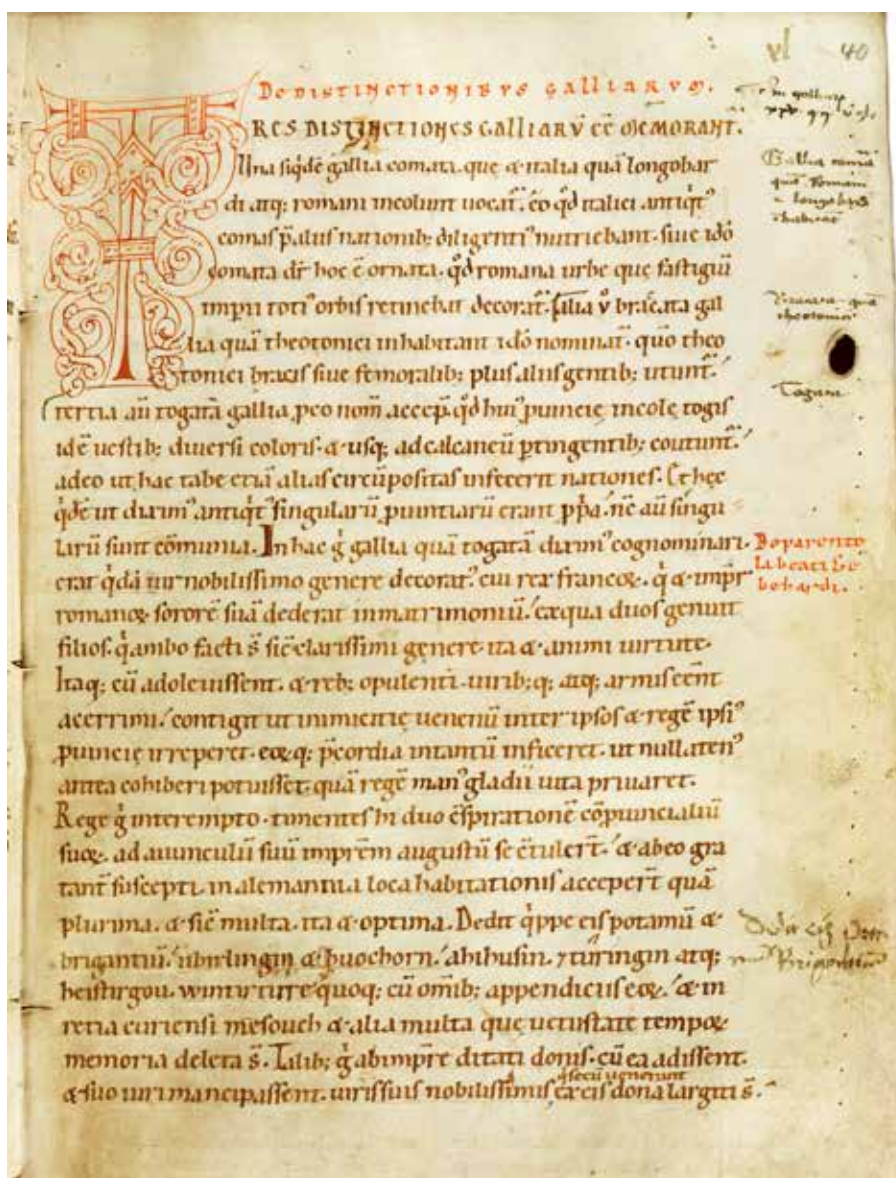 xl 40
De distinctionibus galliarum.
Tres distinctiones galliarū eē memorant̄.
Una siqdē gallia comata. que & italia quā longobar
di atq; romani incolunt uocat̄. eo qd italici antiqt᾿
comas p̄ alus nationib; diligenti᾿ nutriebant. siue idō
comata dr̄ hoc ē ornata. qd romana urbe que fastigiū
imperii toti᾿ orbis retinebat decorat̄. alia v̊ bracata gal
lia quā theotonici inhabitant idō nominat̄. quō theo
tonici bracis siue femoralib; plus alus gentib; utunt̄.
tertia aū togata gallia, p eo nom̄ accep̄. qd hui᾿ puincię incolę togis
idē uestib; diuersi coloris. & usq; ad calcaneū ptingentib; coutunt̄.
adeo ut hac tabe etiā alias circūpositas infecerit nationes. Et hęc
qdē ut diximᾳ antiqt᾿ singularū puintiarū erant ppa. nc̄ aū singu
larū sunt cōmunia. In hac g̊ gallia quā togatā diximᾳ cognominari.
erat qdā uir nobilissimo genere decorat᾿. cui rex francoꝝ. q & impr̄
romanoꝝ sororē suā dederat in matrimoniū. ex qua duos genuit
filios. q ambo facti s̄ sic̄ clarissimi genere. ita & animi uirtute.
Itaq; cū adoleuissent. & reb; opulenti. uirib; q; atq; armis eēnt
acerrimi. contigit ut inimicitię uenenū inter ipsos & regē ipsi᾿
puincię irreperet. eoꝝ q; p̄cordia intantū inficeret. ut nullaten᾿
antea cohiberi potuisset. quā regē man᾿ gladii uita priuaret.
Rege g̊ interempto. timentes hi duo c̄spirationē cōpuincialiū
suoꝝ. ad auunculū suū imprēm augustū se c̄tulert̄. & ab eo gra
tant̄ suscepti. in alemannia loca habitationis accepert̄ quā
plurima. & sic̄ multa. ita & optima. Dedit qppe eis potamū &
brigantiū. ubirlingin & buochorn. ahihusin. ⁊ tūringin atq;
heistirgou. wintirture quoq; cū om̄ib; appendiciis eoꝝ. & in
retia curiensi mesouch & alia multa quę uetustate tempoꝝ
memoria deleta s̄. Talib; g̊ ab imprē ditati donis. cū ea adissent.
& suo iuri mancipassent. uiris suis nobilissimis q secū uenerunt ex eis dona largiti s̄.
Gallia comata
quā Romani
& longobardi
habitant
quā
theotonici
Togata
De parentela beati Gebehardi.
Dedit eis